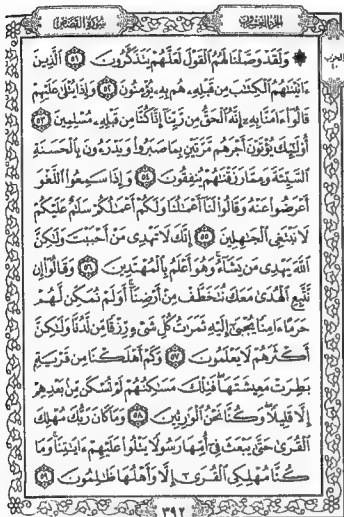 الجزء العشرون
سورة القصص
الحزب
۞ وَلَقَدْ وَصَّلْنَا لَهُمُ الْقَوْلَ لَعَلَّهُمْ يَتَذَكَّرُونَ ٥١ الَّذِينَ
ءَاتَيْنَاهُمُ الْكِتَابَ مِن قَبْلِهِ هُم بِهِ يُؤْمِنُونَ ٥٢ وَإِذَا يُتْلَى عَلَيْهِمْ
قَالُوا ءَامَنَّا بِهِ إِنَّهُ الْحَقُّ مِن رَّبِّنَا إِنَّا كُنَّا مِن قَبْلِهِ مُسْلِمِينَ ٥٣
أُولَٰئِكَ يُؤْتَوْنَ أَجْرَهُم مَّرَّتَيْنِ بِمَا صَبَرُوا وَيَدْرَءُونَ بِالْحَسَنَةِ
السَّيِّئَةَ وَمِمَّا رَزَقْنَاهُمْ يُنفِقُونَ ٥٤ وَإِذَا سَمِعُوا اللَّغْوَ
أَعْرَضُوا عَنْهُ وَقَالُوا لَنَا أَعْمَالُنَا وَلَكُمْ أَعْمَالُكُمْ سَلَامٌ عَلَيْكُمْ
لَا نَبْتَغِي الْجَاهِلِينَ ٥٥ إِنَّكَ لَا تَهْدِي مَنْ أَحْبَبْتَ وَلَٰكِنَّ
اللَّهَ يَهْدِي مَن يَشَاءُ وَهُوَ أَعْلَمُ بِالْمُهْتَدِينَ ٥٦ وَقَالُوا إِن
نَّتَّبِعِ الْهُدَى مَعَكَ نُتَخَطَّفْ مِنْ أَرْضِنَا أَوَلَمْ نُمَكِّن لَّهُمْ
حَرَمًا ءَامِنًا يُجْبَى إِلَيْهِ ثَمَرَاتُ كُلِّ شَيْءٍ رِّزْقًا مِّن لَّدُنَّا وَلَٰكِنَّ
أَكْثَرَهُمْ لَا يَعْلَمُونَ ٥٧ وَكَمْ أَهْلَكْنَا مِن قَرْيَةٍ
بَطِرَتْ مَعِيشَتَهَا فَتِلْكَ مَسَاكِنُهُمْ لَمْ تُسْكَن مِّن بَعْدِهِمْ
إِلَّا قَلِيلًا وَكُنَّا نَحْنُ الْوَارِثِينَ ٥٨ وَمَا كَانَ رَبُّكَ مُهْلِكَ
الْقُرَى حَتَّى يَبْعَثَ فِي أُمِّهَا رَسُولًا يَتْلُو عَلَيْهِمْ ءَايَاتِنَا وَمَا
كُنَّا مُهْلِكِي الْقُرَى إِلَّا وَأَهْلُهَا ظَالِمُونَ ٥٩
٣٩٢